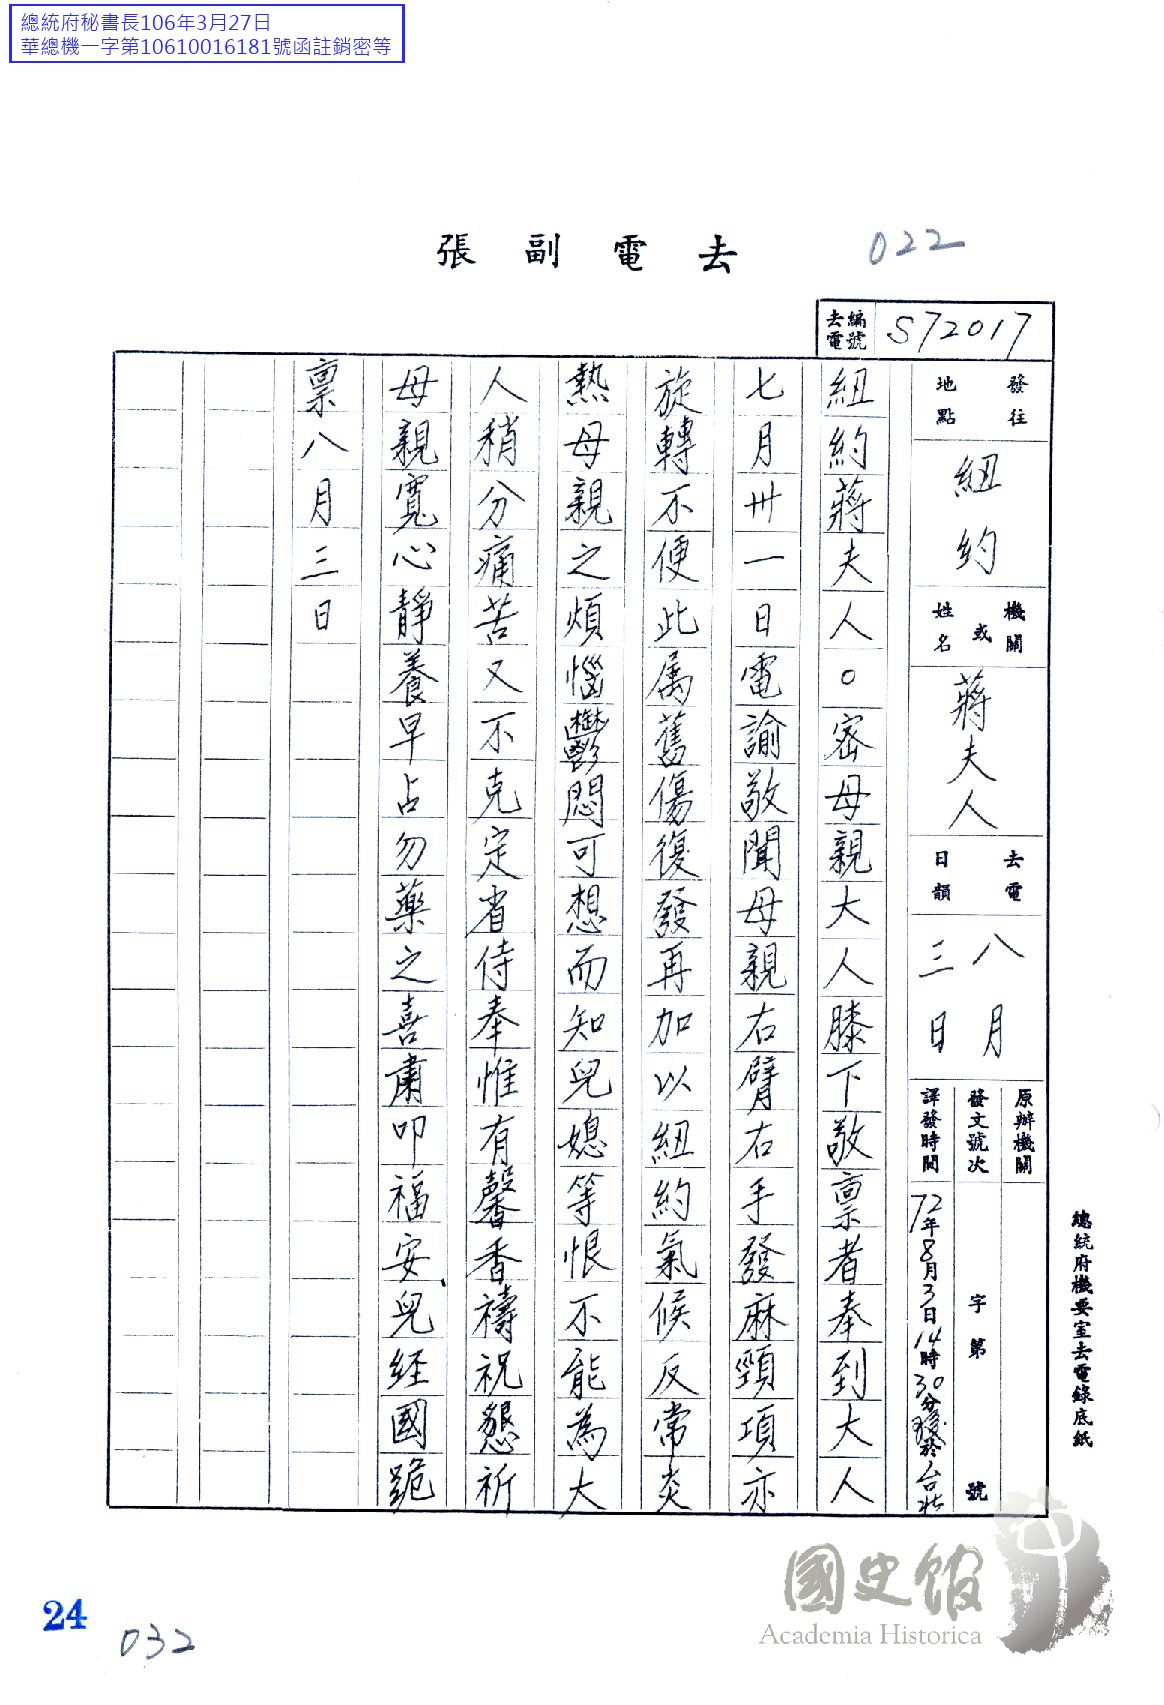 總統府秘書長106年3月27日
華總機一字第10610016181號函註銷密等
去電副張
022
去電編號
S72017
發往地點
紐約
機關或姓名
蔣夫人
去電日韻
八月三日
原辦機關
發文號次
字第 號
譯發時間
72年8月3日14時30分發於台北
紐約蔣夫人。密母親大人膝下敬禀者奉到大人
七月卅一日電諭敬聞母親右臂右手發麻頸項亦
旋轉不便此属舊傷復發再加以紐約氣候反常炎
熱母親之煩惱鬱悶可想而知兒媳等恨不能為大
人稍分痛苦又不克定省侍奉惟有馨香禱祝懇祈
母親寬心靜養早占勿藥之喜肅叩福安、兒経國跪
禀八月三日
總統府機要室去電錄底紙
國史館
Academia Historica
24
032